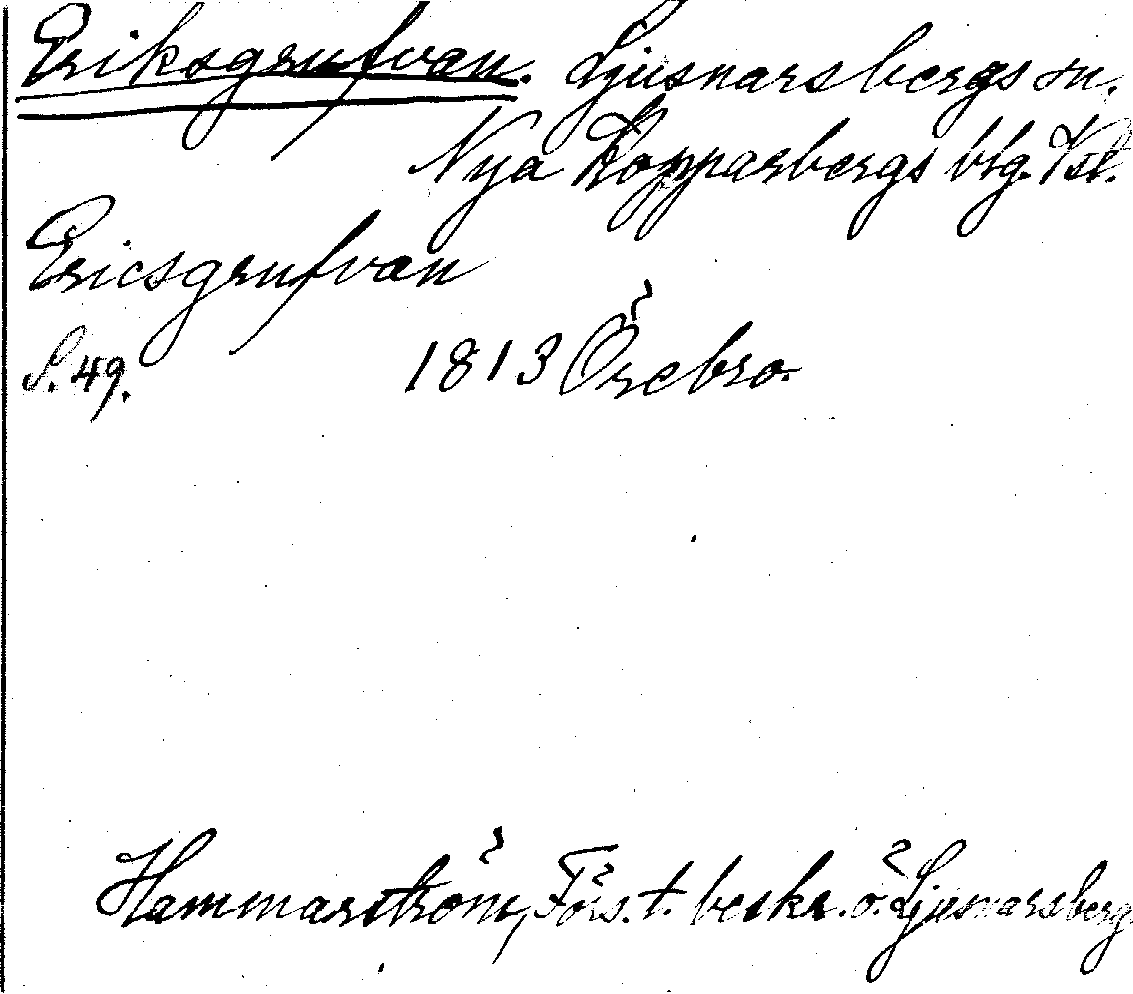 Eriksgrufvan. Ljusnarsbergs sn.
Nya Kopparbergs blg. Vsl.
Ericsgrufvan
S. 49. 1813 Örebro.
Hammarström, Förs. t. beskr. ö. Ljusnarsberg